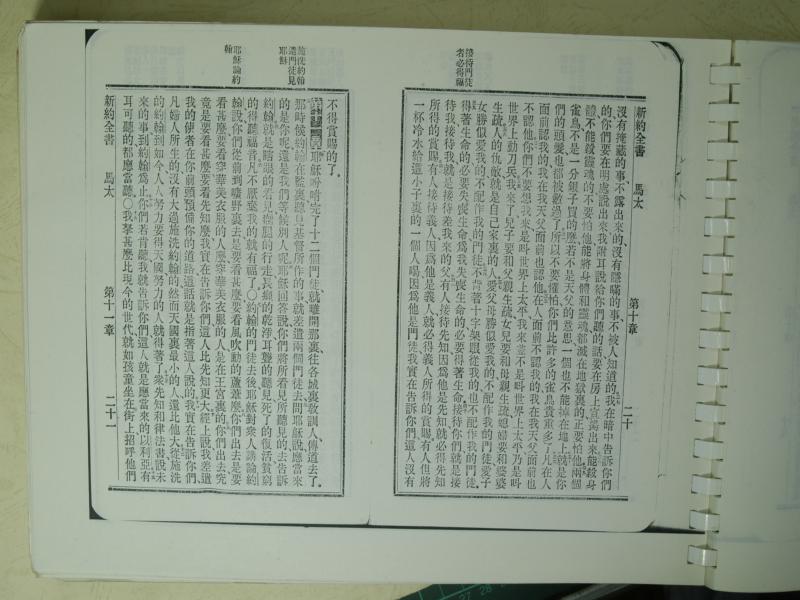 新約全書 馬太 第十章 二十
沒有掩藏的事、不露出來的、沒有隱瞞的事、不被人知道的、我在暗中告訴你們
的、你們要在明處說出來、我附耳說給你們聽的話、要在房上宣揚出來、能殺身
體、不能殺靈魂的、不要怕他、能將身體和靈魂都滅在地獄裏的、正要怕他、兩個
雀鳥、不是一分銀子買的麽、若不是天父的意思、一個也不能掉在地上、就是你
們的頭髮、也都被數過了、所以不要懼怕、你們比許多的雀鳥貴重多了、凡在人
面前認我的、我在我天父面前也認他、在人面前不認我的、我在我天父面前也
不認他、你們不要想我來是叫世界上太平、我來並不是叫世界上太平、乃是叫
世界上動刀兵、我來了、兒子要和父親生疏、女兒要和母親生疏、媳婦要和婆婆
生疏、人的仇敵就是自己家裏的人、愛父母勝似愛我的、不配作我的門徒、愛子
女勝似愛我的、不配作我的門徒、不背著十字架跟從我的、也不配作我的門徒、
得著生命的、必要失喪生命、爲我失喪生命的、必要得著生命、接待你們就是接
待我、接待我、就是接待差我來的父、有人接待先知、因爲他是先知、就必得先知
所得的賞賜、有人接待義人、因爲他是義人、就必得義人所得的賞賜、有人但將
一杯冷水給這小子裏的一個人喝、因爲他是門徒、我實在告訴你們、這人沒有
接待門徒
者必得福
不得賞賜的了、
耶穌吩咐完了十二個門徒、就離開那裏、往各城裏教訓人、傳道去了、
那時候約翰在監裏、聽見基督所作的事、就差遣兩個門徒去問耶穌說、應當來
的是你呢、還是我們等候別人呢、耶穌回答說、你們將所看見所聽見的、去告訴
約翰、就是瞎眼的看見、瘸腿的行走、長癩的乾淨、耳聾的聽見、死了的復活、貧窮
的得聽福音、凡不厭棄我的、就有福了、〇約翰的門徒去後、耶穌對衆人講論約
翰說、你們從前到曠野裏去、是要看甚麼、要看風吹動的蘆葦麽、你們出去是要
看甚麽、要看穿華美衣服的人麼、穿華美衣服的人、是在王宮裏的、你們出去究
竟是要看甚麼、要看先知麼、我實在告訴你們、這人比先知更大、經上說、我差遣
我的使者、在你前頭預備你的道路、這話就是指著這人說的、我實在告訴你們、
凡婦人所生的、沒有大過施洗約翰的、然而天國裏最小的人、還比他大、從施洗
的約翰到如今、人人努力要得天國、努力的人、就得著了、衆先知和律法書、說未
來的事、到約翰爲止、你們若肯聽我、就告訴你們、這人就是應當來的以利亞、有
耳可聽的、都應當聽、〇我拏甚麼比現今的世代、就如孩童坐在街上、招呼他們
新約全書 馬太 第十一章 二十一
施洗約翰
遣門徒見
耶穌
耶穌論約
翰